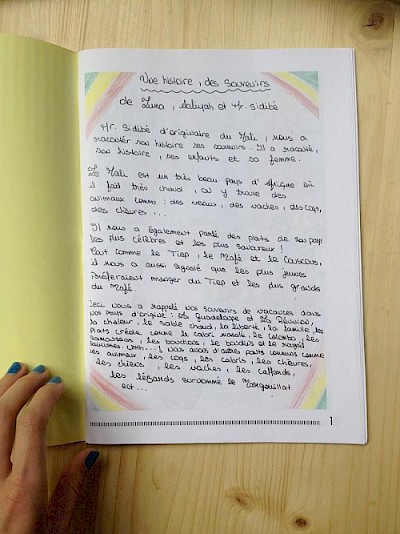 Une histoire, des souvenirs
de Luna, Aaliyah et Mr. Sidibé
Mr. Sidibé d'originaire du Mali, nous a
raconter son histoire ses souvenirs. Il a raconté,
son histoire, ses enfants et sa femme.
Le Mali est un très beau pays d'Afrique où
il fait très chaud, où y trouve des
animaux comme : des veaux, des vaches, des coqs,
des chèvres ...
Il nous a également parlé des plats de son pays
les plus célèbres et les plus savoureux !
Tout comme le Tiep, le Mafé et le Couscous,
il nous a aussi signalé que les plus jeunes
préféraient manger du Tiep et les plus grands
du Mafé.
Ceci nous a rappelé nos souvenirs de vacances dans
nos pays d'origine : La Guadeloupe et La Réunion,
la chaleur, le sable chaud, la liberté, la famille les
plats créole comme le cabri massalé, le colombo, les
samoussas, les bouchons, le boudin et le rougail
saucisses. Umh...! Nous avons d'autres points communs comme
les animaux, les coqs, les cabris, les chèvres,
les chiens, les vaches, les
les lézards surnommé le Margouillat
ect ...
1